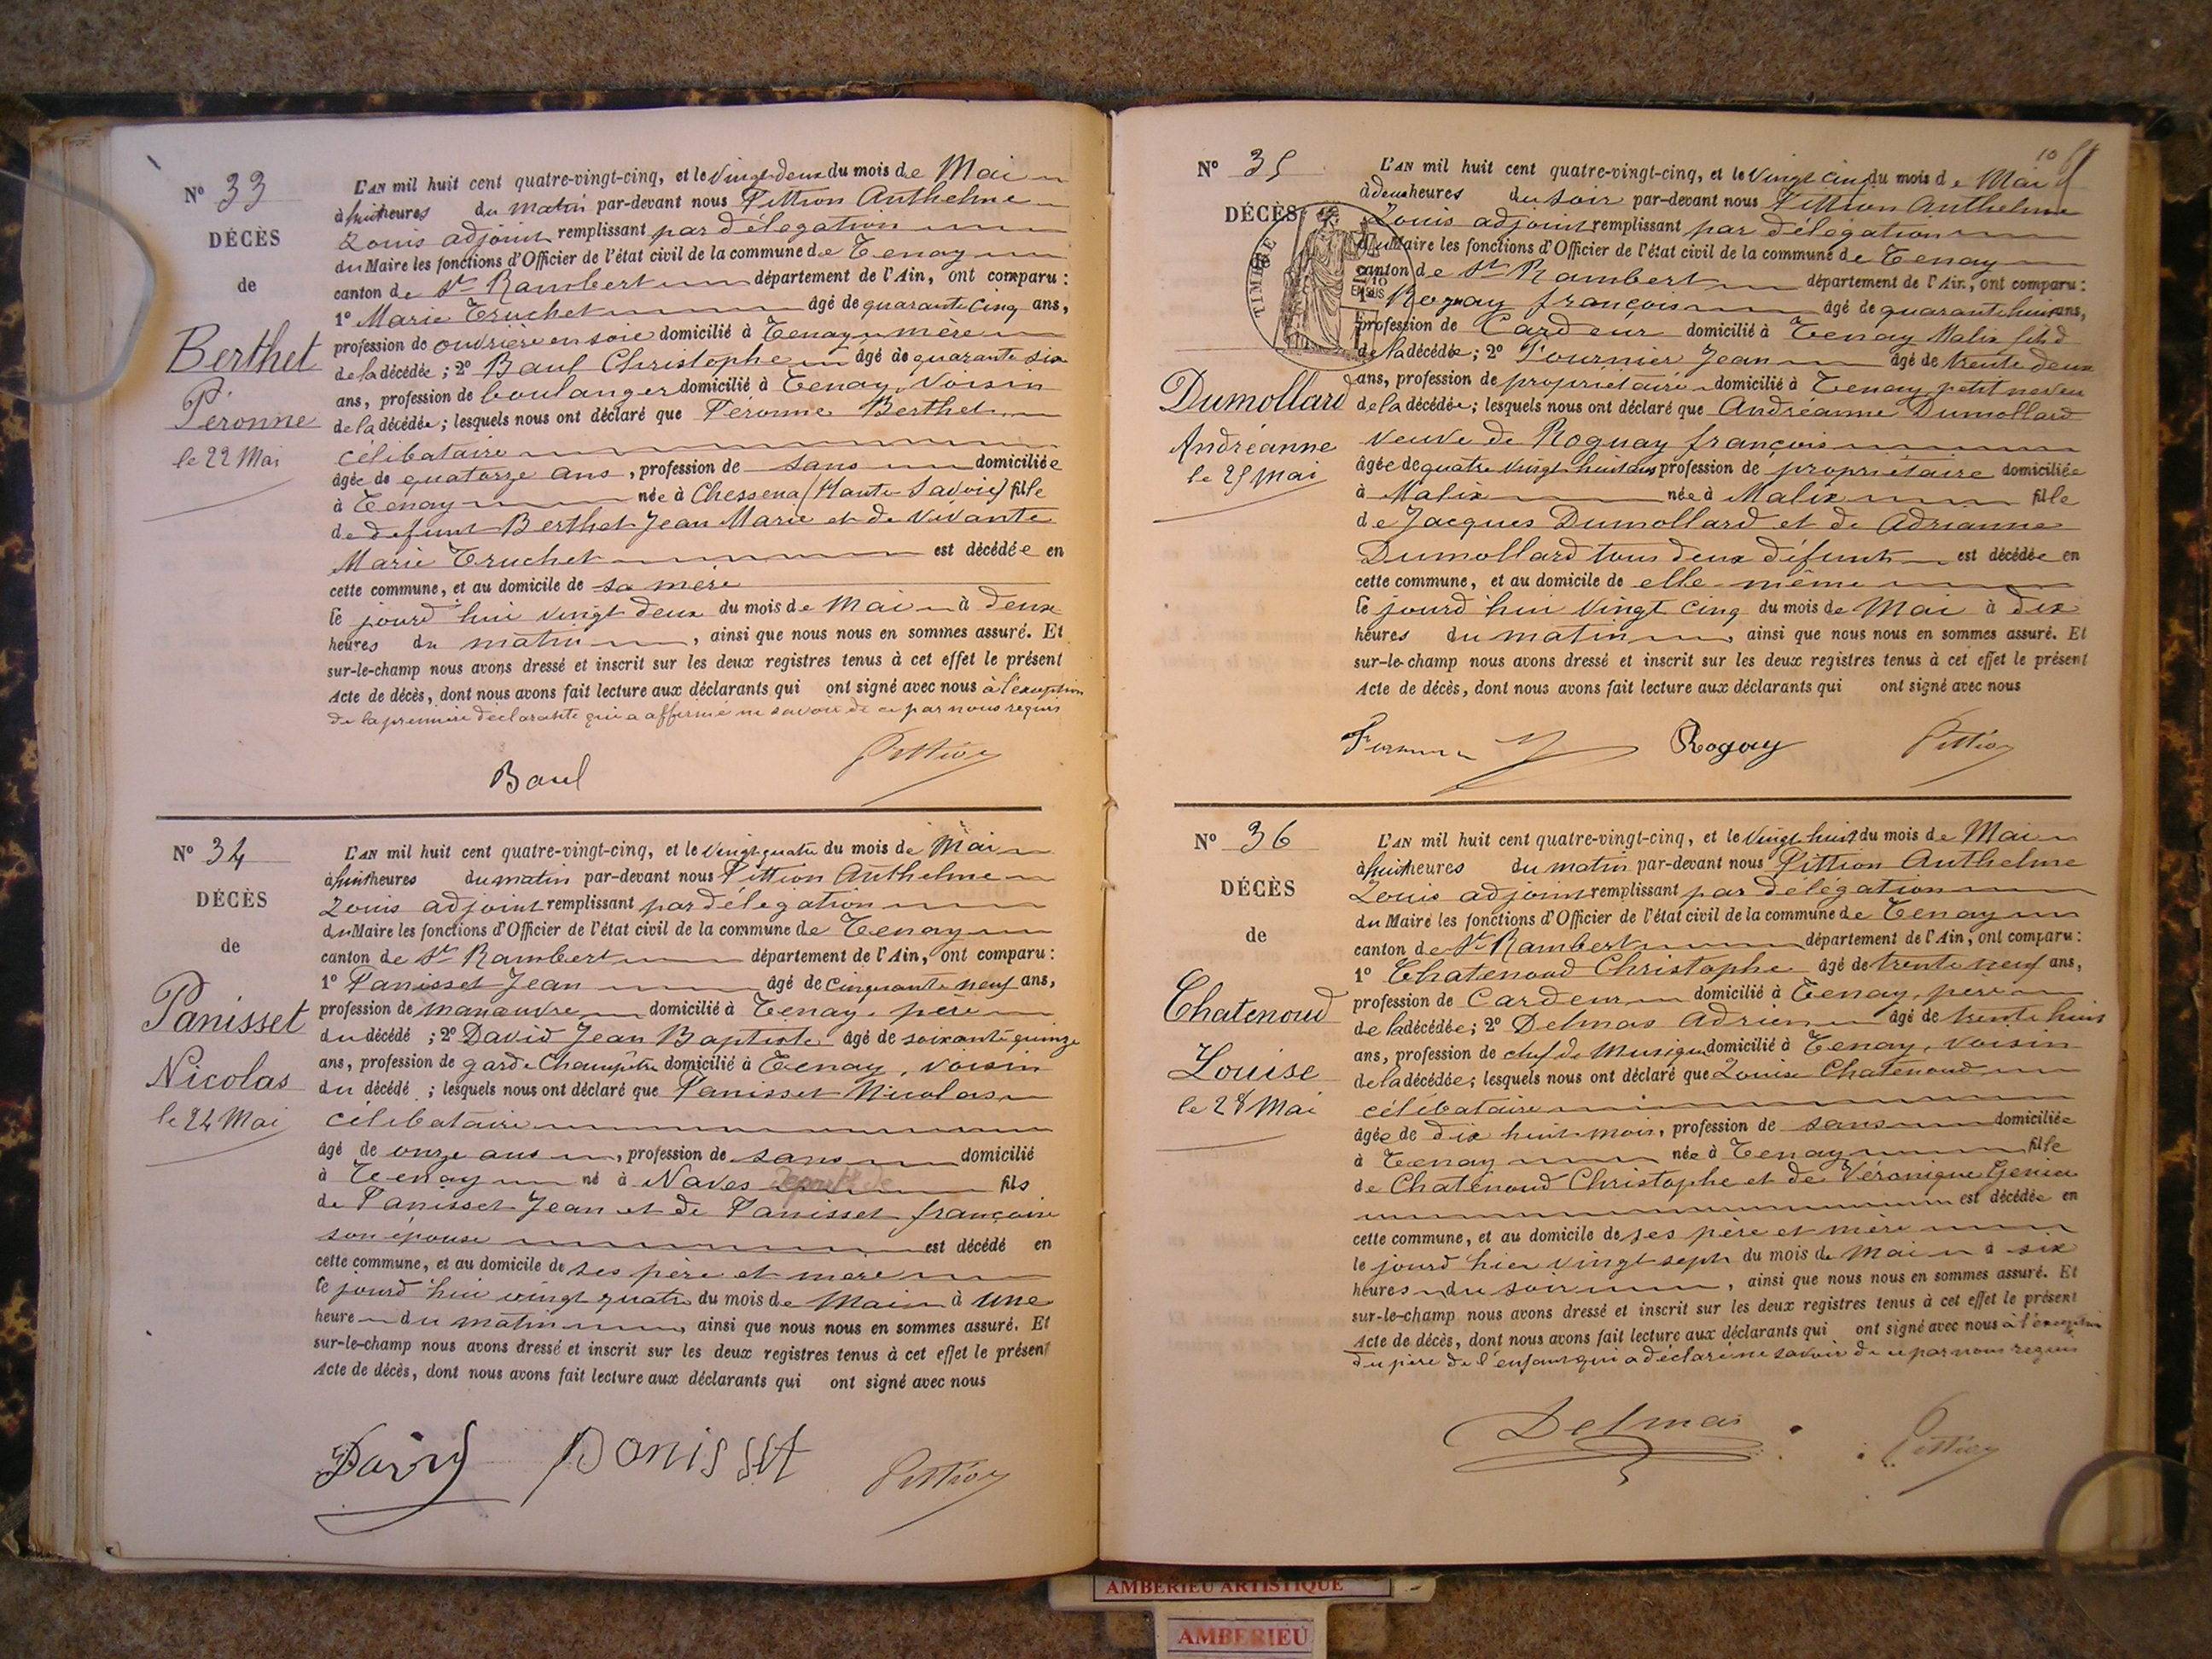 N° 33
DÉCÈS
de
Berthet
Péronne
le 22 Mai
L'AN mil huit cent quatre-vingt-cinq, et le vingt deux du mois de Mai
à huit heures du matin par-devant nous Pittion Anthelme
Louis adjoint remplissant par délégation
du Maire les fonctions d'Officier de l'état civil de la commune de Tenay
canton de St Rambert département de l'Ain, ont comparu :
1° Marie Truchet âgé de quarante cinq ans,
profession de ouvrière en soie domicilié à Tenay mère
de la décédée ; 2° Baul Christophe âgé de quarante six
ans, profession de boulanger domicilié à Tenay, voisin
de la décédée ; lesquels nous ont déclaré que Péronne Berthet
célibataire
âgée de quatorze ans, profession de sans domiciliée
à Tenay née à Chessena (Haute Savoie) fille
de defunt Berthet Jean Marie et de vivante
Marie Truchet est décédée en
cette commune, et au domicile de sa mère
le jourd'hui vingt deux du mois de Mai à deux
heures du matin, ainsi que nous nous en sommes assuré. Et
sur-le-champ nous avons dressé et inscrit sur les deux registres tenus à cet effet le présent
Acte de décès, dont nous avons fait lecture aux déclarants qui ont signé avec nous à l'exception
de la première déclarante qui a affirmé ne savoir de ce par nous requis
Baul Pittion
N° 34
DÉCÈS
de
Panisset
Nicolas
le 24 Mai
L'AN mil huit cent quatre-vingt-cinq, et le vingt quatre du mois de Mai
à huit heures du matin par-devant nous Pittion Anthelme
Louis adjoint remplissant par délégation
du Maire les fonctions d'Officier de l'état civil de la commune de Tenay
canton de St Rambert département de l'Ain, ont comparu :
1° Panisset Jean âgé de cinquante neuf ans,
profession de manœuvre domicilié à Tenay, père
du décédé ; 2° David Jean Baptiste âgé de soixante quinze
ans, profession de garde Champêtre domicilié à Tenay, voisin
du décédé ; lesquels nous ont déclaré que Panisset Nicolas
célibataire
âgé de onze ans, profession de sans domicilié
à Tenay né à Naves fils
de Panisset Jean et de Panisset françoise
son épouse est décédé en
cette commune, et au domicile de ses père et mère
le jourd'hui vingt quatre du mois de Mai à une
heure du matin, ainsi que nous nous en sommes assuré. Et
sur-le-champ nous avons dressé et inscrit sur les deux registres tenus à cet effet le présent
Acte de décès, dont nous avons fait lecture aux déclarants qui ont signé avec nous
David Panisset Pittion
10
N° 35
DÉCÈS
de
TIMBRE
Dumollard
Andréanne
le 25 Mai
L'AN mil huit cent quatre-vingt-cinq, et le vingt cinq du mois de Mai
à deux heures du soir par-devant nous Pittion Anthelme
Louis adjoint remplissant par délégation
du Maire les fonctions d'Officier de l'état civil de la commune de Tenay
canton de St Rambert département de l'Ain, ont comparu :
1° Roguay françois âgé de quarante huit ans,
profession de Cardeur domicilié à Tenay Malix fils
de la décédée ; 2° Fournier Jean âgé de trente deux
ans, profession de propriétaire domicilié à Tenay petit neveu
de la décédée ; lesquels nous ont déclaré que Andréanne Dumollard
veuve de Roguay françois
âgée de quatre vingt huit ans profession de propriétaire domiciliée
à Malix née à Malix fille
de Jacques Dumollard et de Adrianne
Dumollard tous deux défunts est décédée en
cette commune, et au domicile de elle même
le jourd'hui vingt cinq du mois de Mai à dix
heures du matin, ainsi que nous nous en sommes assuré. Et
sur-le-champ nous avons dressé et inscrit sur les deux registres tenus à cet effet le présent
Acte de décès, dont nous avons fait lecture aux déclarants qui ont signé avec nous
Rogay Pittion
N° 36
DÉCÈS
de
Chatenoud
Louise
le 28 Mai
L'AN mil huit cent quatre-vingt-cinq, et le vingt huit du mois de Mai
à huit heures du matin par-devant nous Pittion Anthelme
Louis adjoint remplissant par délégation
du Maire les fonctions d'Officier de l'état civil de la commune de Tenay
canton de St Rambert département de l'Ain, ont comparu :
1° Chatenoud Christophe âgé de trente neuf ans,
profession de Cardeur domicilié à Tenay, père
de la décédée ; 2° Delmas Adrien âgé de trente huit
ans, profession de chef de Musique domicilié à Tenay, voisin
de la décédée ; lesquels nous ont déclaré que Louise Chatenoud
célibataire
âgée de dix huit mois, profession de sans domiciliée
à Tenay née à Tenay fille
de Chatenoud Christophe et de Véronique
est décédée en
cette commune, et au domicile de ses père et mère
le jourd'hier vingt sept du mois de Mai à six
heures du soir, ainsi que nous nous en sommes assuré. Et
sur-le-champ nous avons dressé et inscrit sur les deux registres tenus à cet effet le présent
Acte de décès, dont nous avons fait lecture aux déclarants qui ont signé avec nous à l'exception
du père de l'enfant qui a déclaré ne savoir de ce par nous requis
Delmas Pittion
AMBERIEU ARTISTIQUE
AMBERIEU